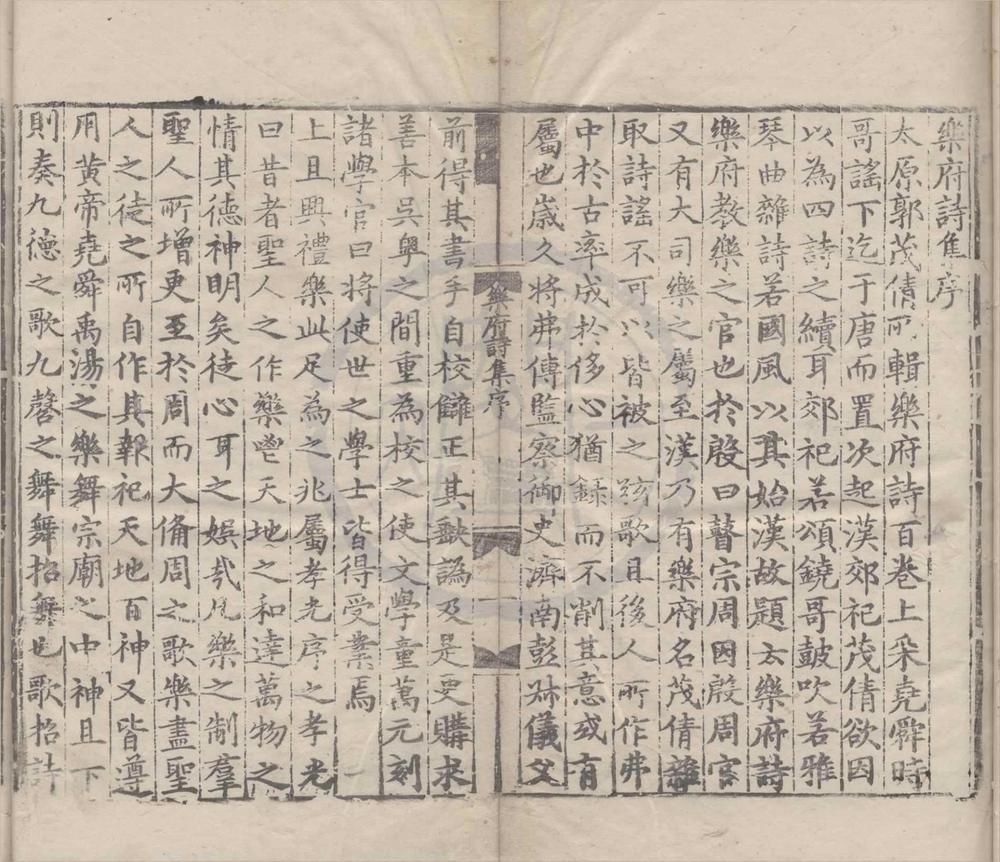 樂府詩集序
太原郭茂倩所輯樂府詩百卷上采堯舜時
哥謠下迄于唐而置次起漢郊祀茂倩欲因
以為四詩之續耳郊祀若頌鐃哥鼓吹若雅
琴曲雜詩若國風以其始漢故題太樂府詩
樂府教樂之官也於殷曰瞽宗周因殷周官
又有大司樂之屬至漢乃有樂府名茂倩雜
取詩謠不可以皆被之絃歌且後人所作弗
中於古率成於侈心猶錄而不削其意或有
屬也歲久將弗傳監察御史濟南彭叔儀父
樂府詩集序
一
前得其書手自校讎正其缺譌及是更購求
善本吳粵之間重為校之使文學童萬元刻
諸學官曰將使世之學士皆得受業焉
上且興禮樂此足為之兆屬孝光序之孝光
曰昔者聖人之作樂鬯天地之和達萬物之
情其德神明矣徒心耳之娛哉凡樂之制羣
聖人所增更至於周而大備周之歌樂盡聖
人之徒之所自作其報祀天地百神又皆遵
用黃帝堯舜禹湯之樂舞宗廟之中神且下
則奏九德之歌九㲈之舞舞招舞也歌招詩